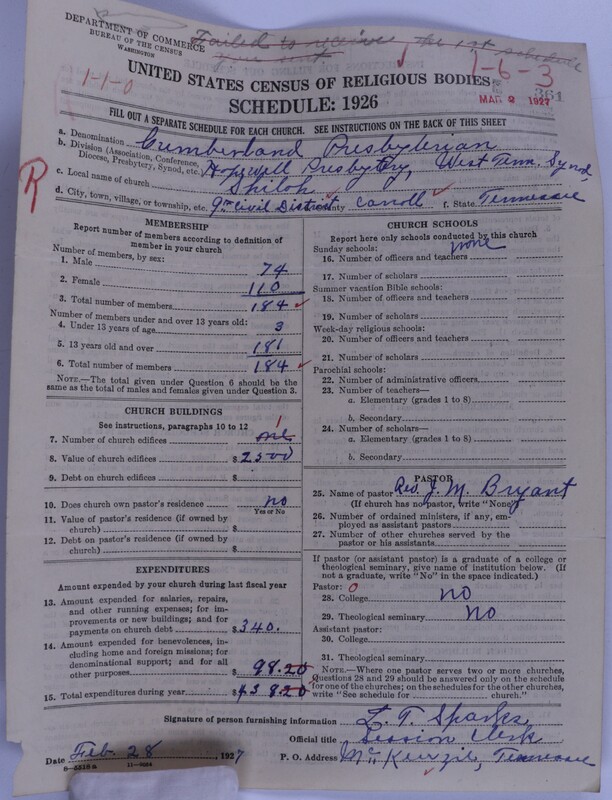 DEPARTMENT OF COMMERCE
BUREAU OF THE CENSUS
WASHINGTON
Failed to receive the 1st schedule
1-1-0
1-6-3
UNITED STATES CENSUS OF RELIGIOUS BODIES
361
SCHEDULE: 1926
MAR 2 1927
FILL OUT A SEPARATE SCHEDULE FOR EACH CHURCH. SEE INSTRUCTIONS ON THE BACK OF THIS SHEET
a. Denomination Cumberland Presbyterian
b. Division (Association, Conference, Diocese, Presbytery, Synod, etc.) Hopewell Presbytery, West Tenn. Synod
c. Local name of church Shiloh
R
d. City, town, village, or township, etc. 9th Civil District County Carroll f. State Tennessee
MEMBERSHIP
Report number of members according to definition of
member in your church
Number of members, by sex:
1. Male 74
2. Female 110
3. Total number of members 184
Number of members under and over 13 years old:
4. Under 13 years of age 3
5. 13 years old and over 181
6. Total number of members 184
NOTE.—The total given under Question 6 should be the
same as the total of males and females given under Question 3.
CHURCH BUILDINGS
See instructions, paragraphs 10 to 12
1
7. Number of church edifices one
8. Value of church edifices $2500
9. Debt on church edifices $
10. Does church own pastor's residence no
Yes or No
11. Value of pastor's residence (if owned by
church) $
12. Debt on pastor's residence (if owned by
church) $
EXPENDITURES
Amount expended by your church during last fiscal year
13. Amount expended for salaries, repairs,
and other running expenses; for im-
provements or new buildings; and for
payments on church debt $340.
14. Amount expended for benevolences, in-
cluding home and foreign missions; for
denominational support; and for all
other purposes 98.20
15. Total expenditures during year $438.20
CHURCH SCHOOLS
Report here only schools conducted by this church
Sunday schools: none
16. Number of officers and teachers
17. Number of scholars
Summer vacation Bible schools:
18. Number of officers and teachers
19. Number of scholars
Week-day religious schools:
20. Number of officers and teachers
21. Number of scholars
Parochial schools:
22. Number of administrative officers
23. Number of teachers—
a. Elementary (grades 1 to 8)
b. Secondary
24. Number of scholars—
a. Elementary (grades 1 to 8)
b. Secondary
PASTOR
25. Name of pastor Rev. J. M. Bryant
(If church has no pastor, write "None")
26. Number of ordained ministers, if any, em-
ployed as assistant pastors
27. Number of other churches served by the
pastor or his assistants
If pastor (or assistant pastor) is a graduate of a college or
theological seminary, give name of institution below. (If
not a graduate, write "No" in the space indicated.)
Pastor: 0
28. College no
29. Theological seminary No
Assistant pastor:
30. College
31. Theological seminary
NOTE.—Where one pastor serves two or more churches,
Questions 28 and 29 should be answered only on the schedule
for one of the churches; on the schedules for the other churches,
write "See schedule for church."
Signature of person furnishing information L. T. Sparks
Official title Session Clerk
Date Feb. 28, 1927 P. O. Address McKenzie, Tennessee
8-5310a 11-9084